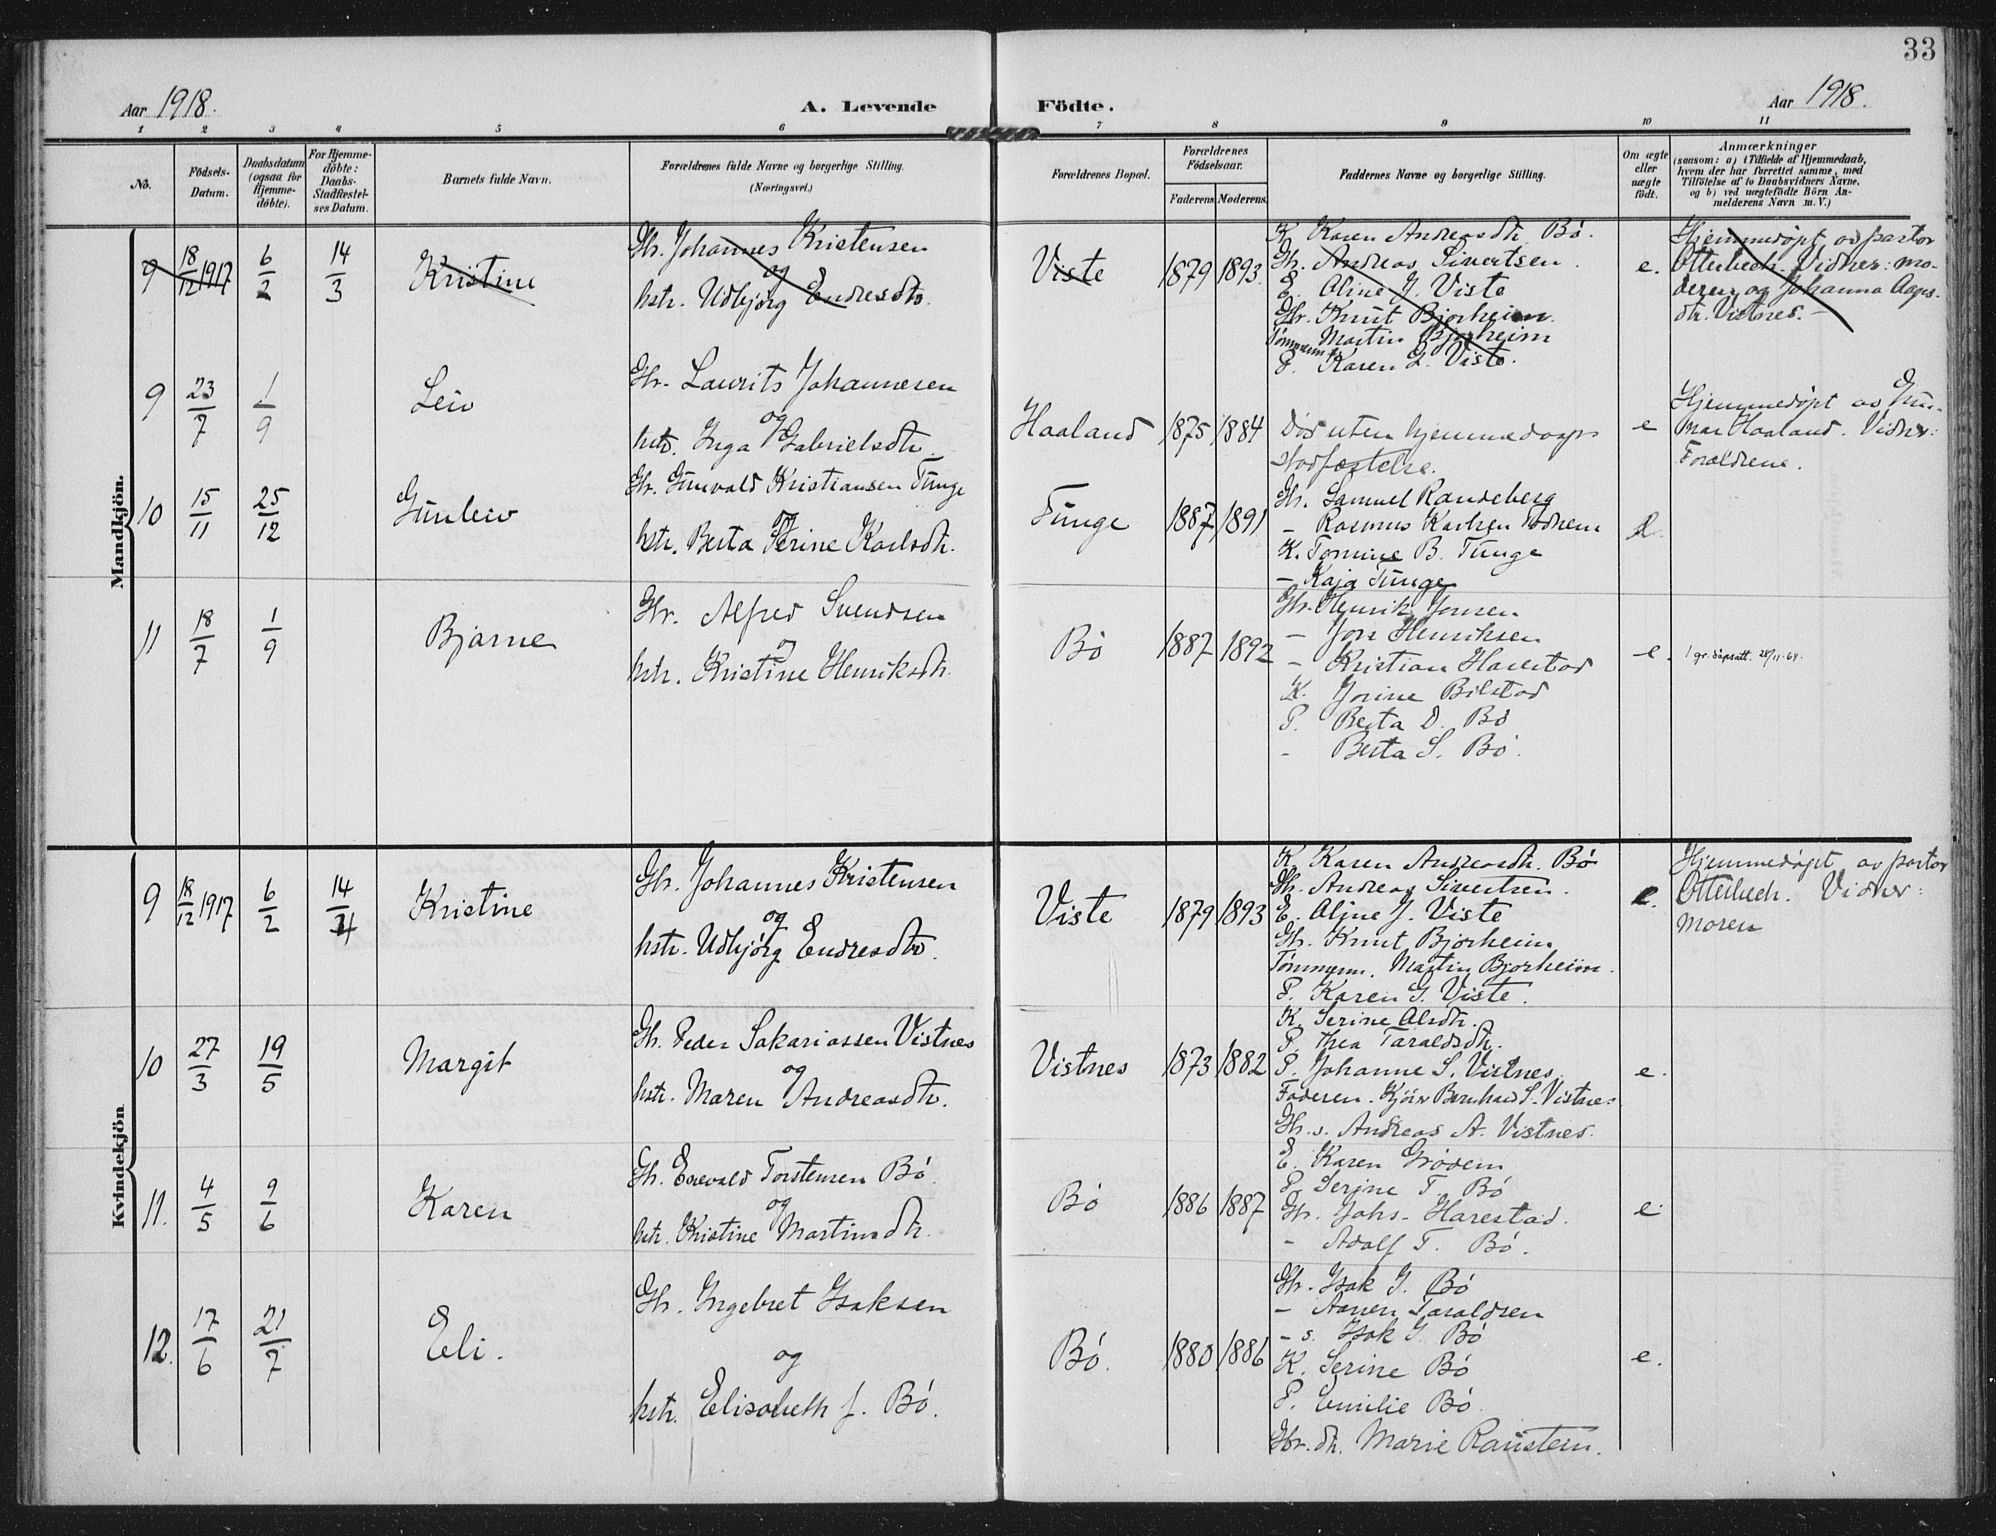 33
Aar 1918.
A. Levende Födte.
Aar 1918.
1 2 3 4 5 6 7 8 9 10 11
No.
Födsels-
Datum.
Daabsdatum
(ogsaa for
Hjemme-
döbte).
For Hjemme-
döbte:
Daabs-
Stadfæstel-
ses Datum.
Barnets fulde Navn.
Forældrenes fulde Navne og borgerlige Stilling.
(Næringsvei.)
Forældrenes Bopæl.
Forældrenes
Födselsaar.
Faderens. Moderens.
Faddernes Navne og borgerlige Stilling.
Om ægte
eller
uægte
födt.
Anmærkninger
(saasom: a) i Tilfælde af Hjemmedaab,
hvem der har forrettet samme, med
Tilföielse af to Daabsvidners Navne,
og b) ved uægtefödte Börn An-
melderens Navn m. V.)
Mandkjön.
9 18/12 1917 6/2 14/3 Kristine
Gbr. Johannes Kristensen
og
hstr. Udbjørg Endresdtr.
Viste 1879 1893.
K. Karen Andreasdtr. Bö.
Gbr. Andreas Sivertsen.
E. Aline J. Viste
Gbr. Knut Bjorheim.
Tømmerm. Martin Bjorheim
P. Karen G. Viste.
e.
Hjemmedøpt av pastor
Otterbech. Vidner: mo-
deren og Johanna Aags-
dtr. Vistnes. –
9 23/7 1/9 Leiv
Gbr. Laurits Johannesen
og
hstr. Inga Gabrielsdtr.
Haaland 1875 1884
Död uten hjemmedaaps
stadfæstelse.
e
Hjemmedøpt av Gun-
nar Haaland. Vidner:
Forældrene.
10 15/11 25/12 Gunleiv
Gbr. Gunvald Kristiansen Tunge
og
hstr. Berta Serine Karlsdtr.
Tunge 1887 1891
Gbr. Samuel Randeberg
– Rasmus Karlsen Todnem
K. Tomine B. Tunge
– Kaja Tunge
e.
11 18/7 1/9 Bjarne
Gbr. Alfred Svendsen
og
hstr. Kristine Henriksdtr.
Bö 1887 1892
Gbr. Henrik Jonsen
– Jon Henriksen
– Kristian Harestad
K. Jorine Bilstad
P. Berta D. Bö
– Berta S. Bö.
e.
1 gr. dåpsatt. 28/11-64.
Kvindekjön
9 18/12 1917 6/2 14/4 Kristine
Gbr. Johannes Kristensen
og
hstr. Udbjörg Endresdtr.
Viste 1879 1893
K. Karen Andreasdtr. Bö
Gbr. Andreas Sivertsen.
E. Aline J. Viste
Gbr. Knut Bjorheim
Tømmerm. Martin Bjorheim.
P. Karen G. Viste.
e.
Hjemmedøpt av pastor
Otterbech. Vidner:
Moren
10 27/3 19/5 Margit
Gbr. Peder Sakariassen Vistnes
og
hstr. Maren Andreasdtr.
Vistnes 1873 1882
K. Serine Olsdtr.
P. Thea Taraldsdtr.
P. Johanne S. Vistnes
Faderen. Bernhard S. Vistnes
Gbr. s. Andreas A. Vistnes.
e.
11. 4/5 9/6 Karen
Gbr. Enevald Torstensen Bö
og
hstr. Kristine Martinsdtr.
Bö 1886 1887
E. Karen Grödem
P. Serine T. Bö
Gbr. Johs. Harestad.
– Adolf T. Bö.
e.
12. 17/6 21/7 Eli.
Gbr. Ingebret Isaksen
og
hstr. Elisabeth f. Bö.
Bö. 1880 1886
Gbr. Isak I. Bö
– Aanen Taraldsen
– s. Isak I. Bö
K. Serine Bö
P. Emilie Bö.
Gbr. dtr. Marie
e.